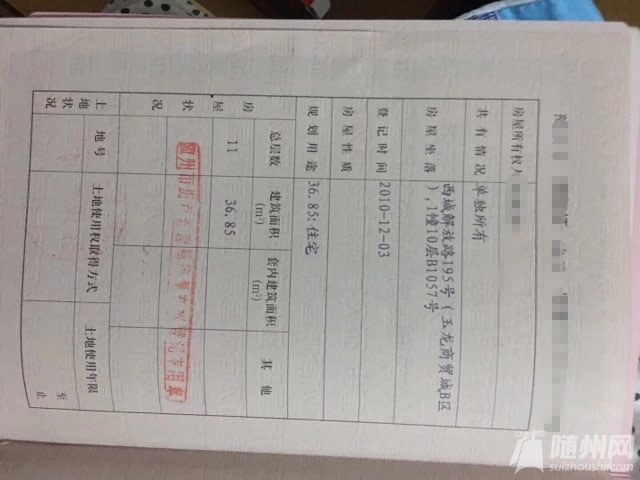 房屋所有权人
共有情况 单独所有
房屋坐落 西城解放路195号（玉龙商贸城B区
），1幢10层B1057号
登记时间 2010-12-03
房屋性质
规划用途 36.85:住宅
房屋状况 总层数 建筑面积(m²) 套内建筑面积(m²) 其他
11 36.85
土地状况 地号 土地使用权取得方式 土地使用年限
至 止
随州网
suizhoushi.com